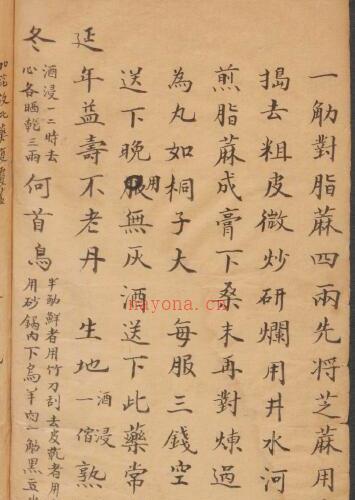 一觔對脂蔴四兩先將芝蔴用
搗去粗皮微炒研爛用井水河
煎脂蔴成膏下桑末再對煉過
為丸如桐子大每服三錢空
送下晚用無灰酒送下此藥常
延年益壽不老丹 生地 酒浸一宿 熟
冬 酒浸一二時去心各晒乾三兩 何首烏 半觔鮮者用竹刀刮去皮乾者用 用砂鍋內下烏羊肉一觔黑豆
nayona.cn